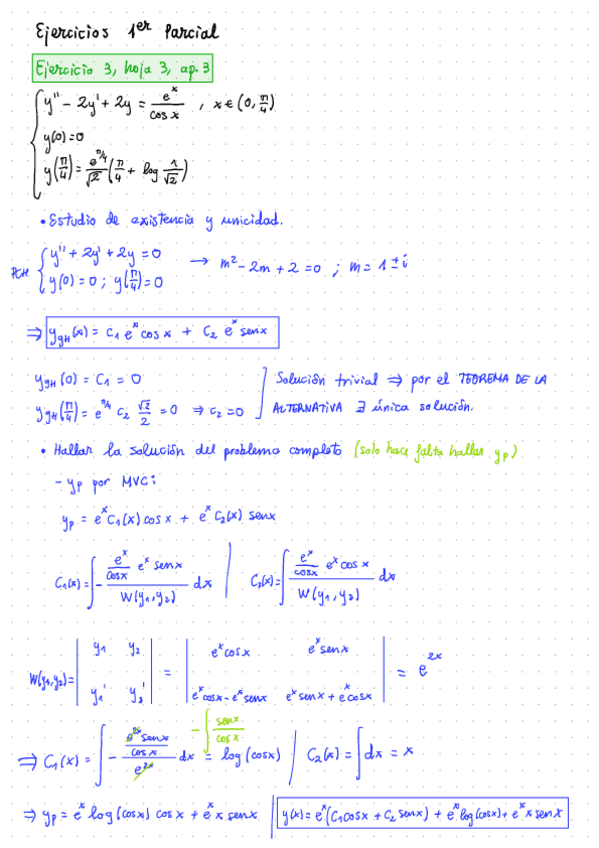 Ejercicios 1er Parcial
Ejercicio 3, hoja 3, ap.3
y'' - 2y' + 2y = e^x / cos x , x ∈ (0, π/4)
y(0) = 0
y(π/4) = e^(π/4)/√2 (π/4 + log 1/√2)
• Estudio de existencia y unicidad.
PCH { y'' + 2y' + 2y = 0 ; y(0) = 0 ; y(π/4) = 0 → m² - 2m + 2 = 0 ; m = 1 ± i
⇒ y_gH(x) = C1 e^x cos x + C2 e^x sen x
y_gH(0) = C1 = 0
y_gH(π/4) = e^(π/4) C2 √2/2 = 0 ⇒ C2 = 0
Solución trivial ⇒ por el TEOREMA DE LA
ALTERNATIVA ∃ única solución.
• Hallar la solución del problema completo (solo hace falta hallar yp)
- yp por MVC:
yp = e^x C1(x) cos x + e^x C2(x) sen x
C1(x) = ∫ - (e^x/cos x e^x sen x) / W(y1, y2) dx | C2(x) = ∫ (e^x/cos x e^x cos x) / W(y1, y2) dx
W(y1, y2) = | y1 y2 ; y1' y2' | = | e^x cos x e^x sen x ; e^x cos x - e^x sen x e^x sen x + e^x cos x | = e^2x
- ∫ sen x / cos x
⇒ C1(x) = ∫ - (e^2x sen x / cos x) / e^2x dx = log(cos x) | C2(x) = ∫ dx = x
⇒ yp = e^x log(cos x) cos x + e^x x sen x | y(x) = e^x (C1 cos x + C2 sen x) + e^x log(cos x) + e^x x sen x